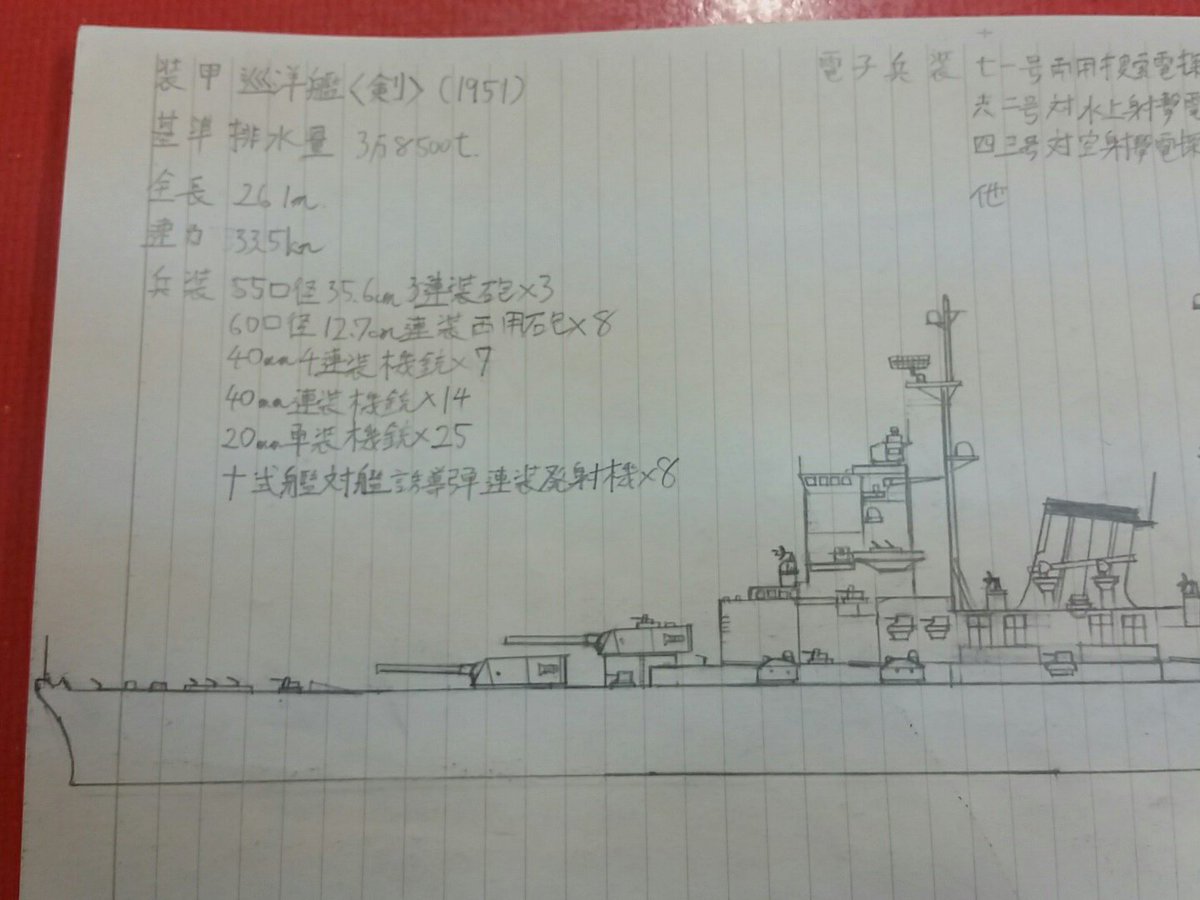 装甲巡洋艦〈剣〉(1951)
基準排水量 3万8500t.
全長 261m.
速力 33.5kn
兵装 55口径35.6cm3連装砲×3
60口径12.7cm連装両用砲×8
40mm4連装機銃×7
40mm連装機銃×14
20mm単装機銃×25
十式艦対艦誘導弾連装発射機×8
電子兵装 七一号両用捜索電探
六二号対水上射撃電
四三号対空射撃電探
他